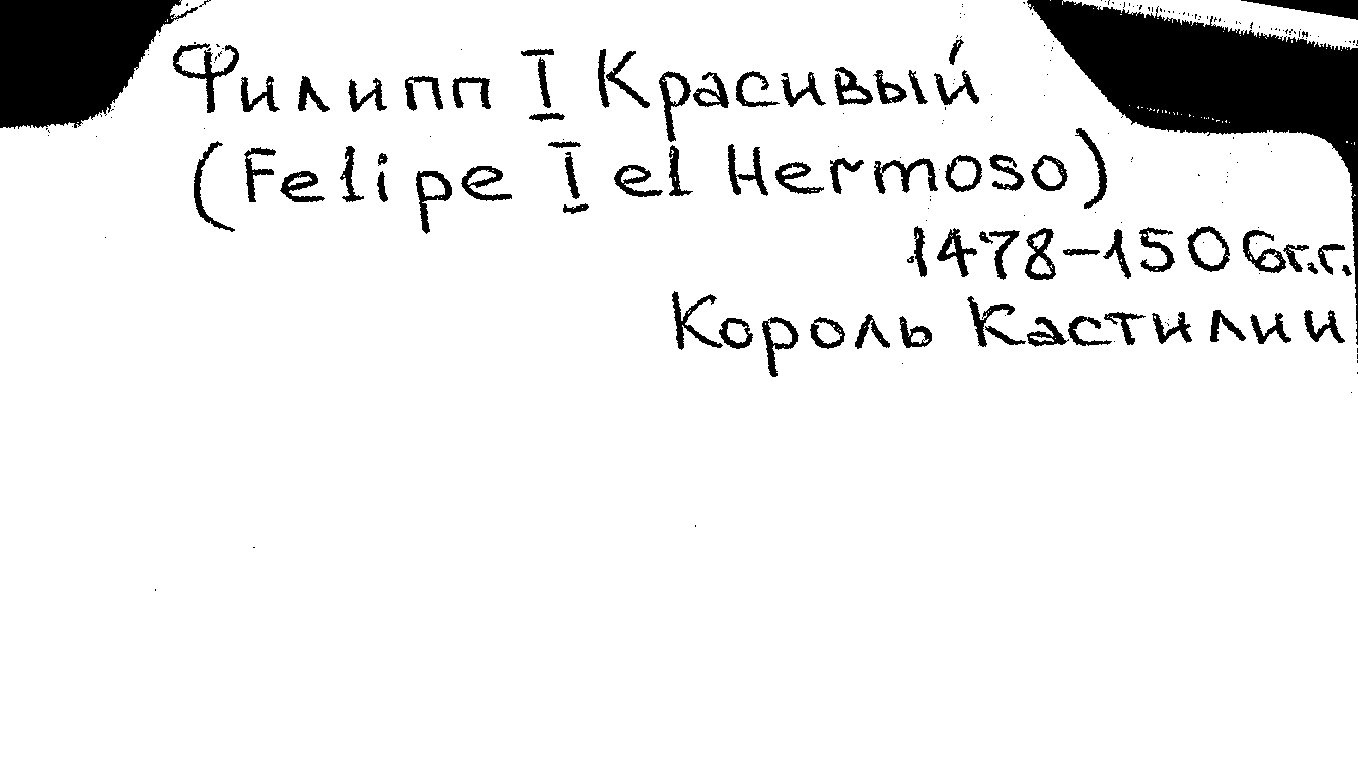 Филипп I Красивый
(Felipe I el Hermoso)
1478-1506г.г.
Король Кастилии